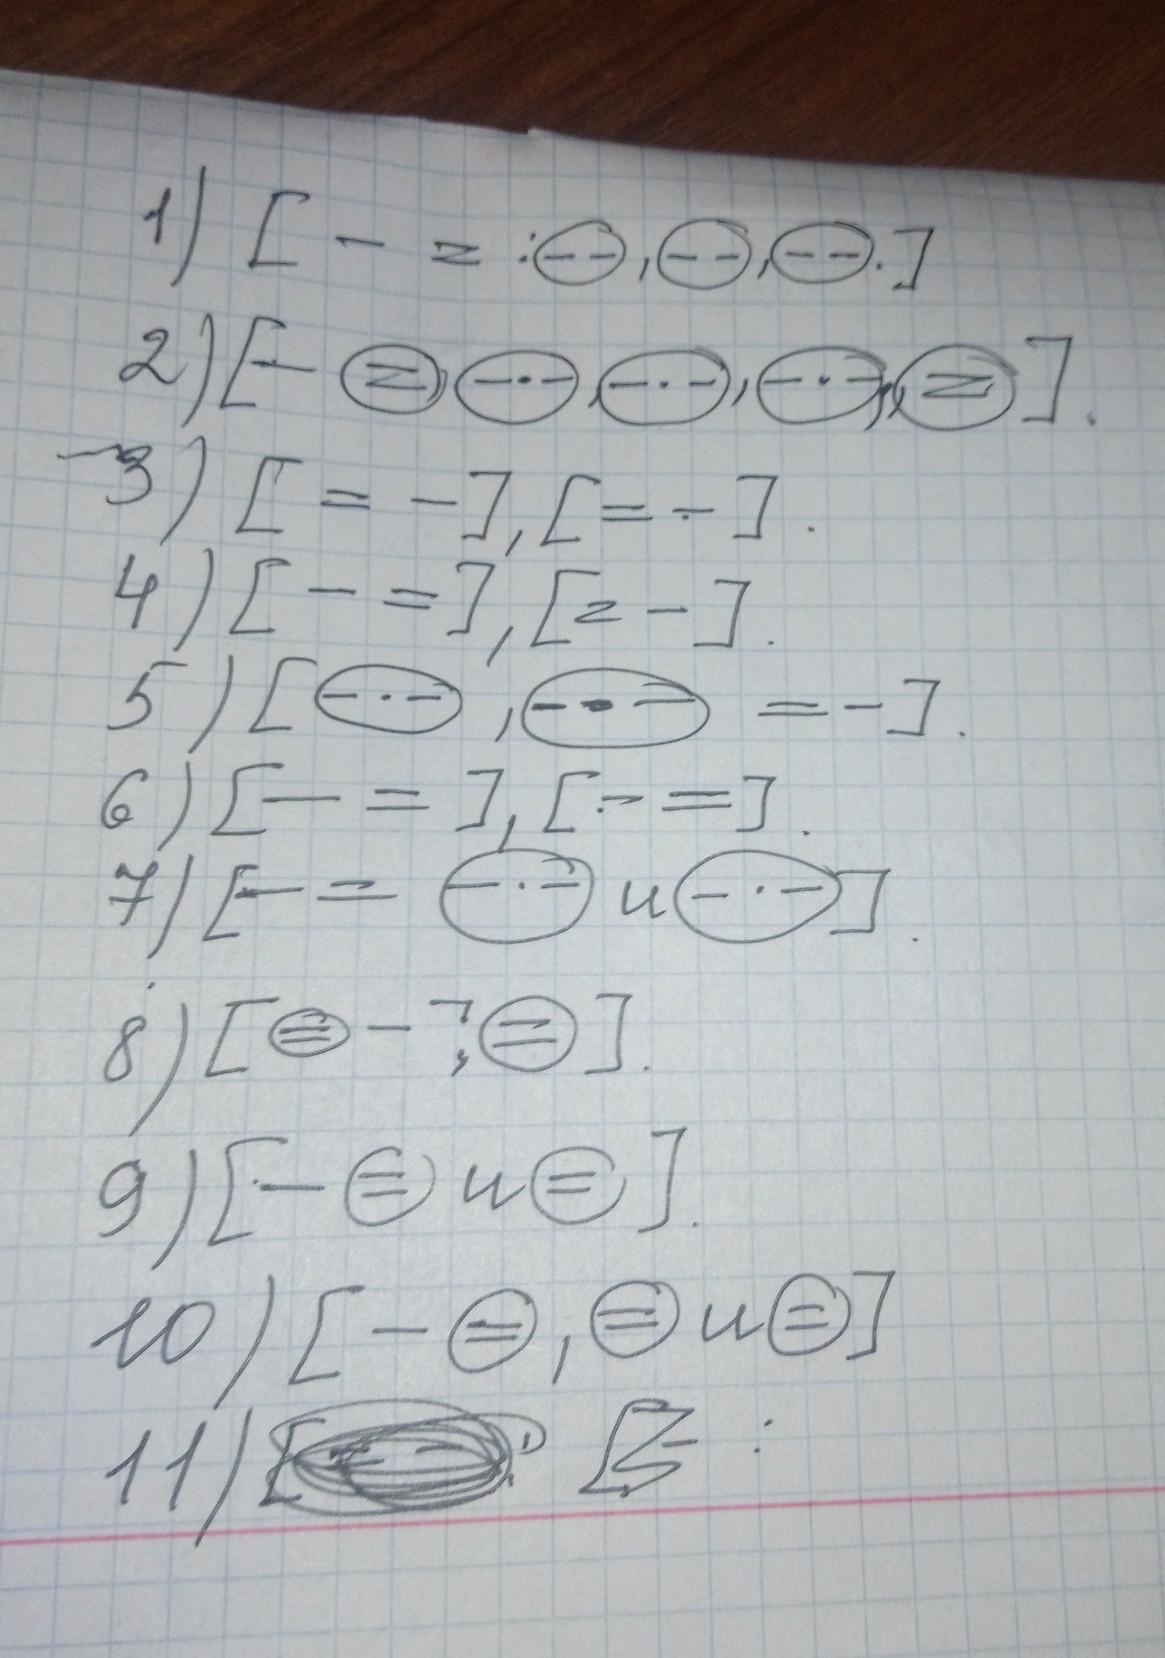 1) [ — = : (– –), (– –), (– –).]
2) [— (=), (— · –), (— · –), (— · –), (=)].
3) [ = — ], [ = — ].
4) [ — = ], [ = — ].
5) [ (— · —), (— · —) = — ].
6) [ — = ], [ — = ].
7) [ — = (— · —) и (— · —) ].
8) [ (=) — ; (=) ].
9) [ — (=) и (=) ].
10) [ — (=), (=) и (=) ]
11) [ :